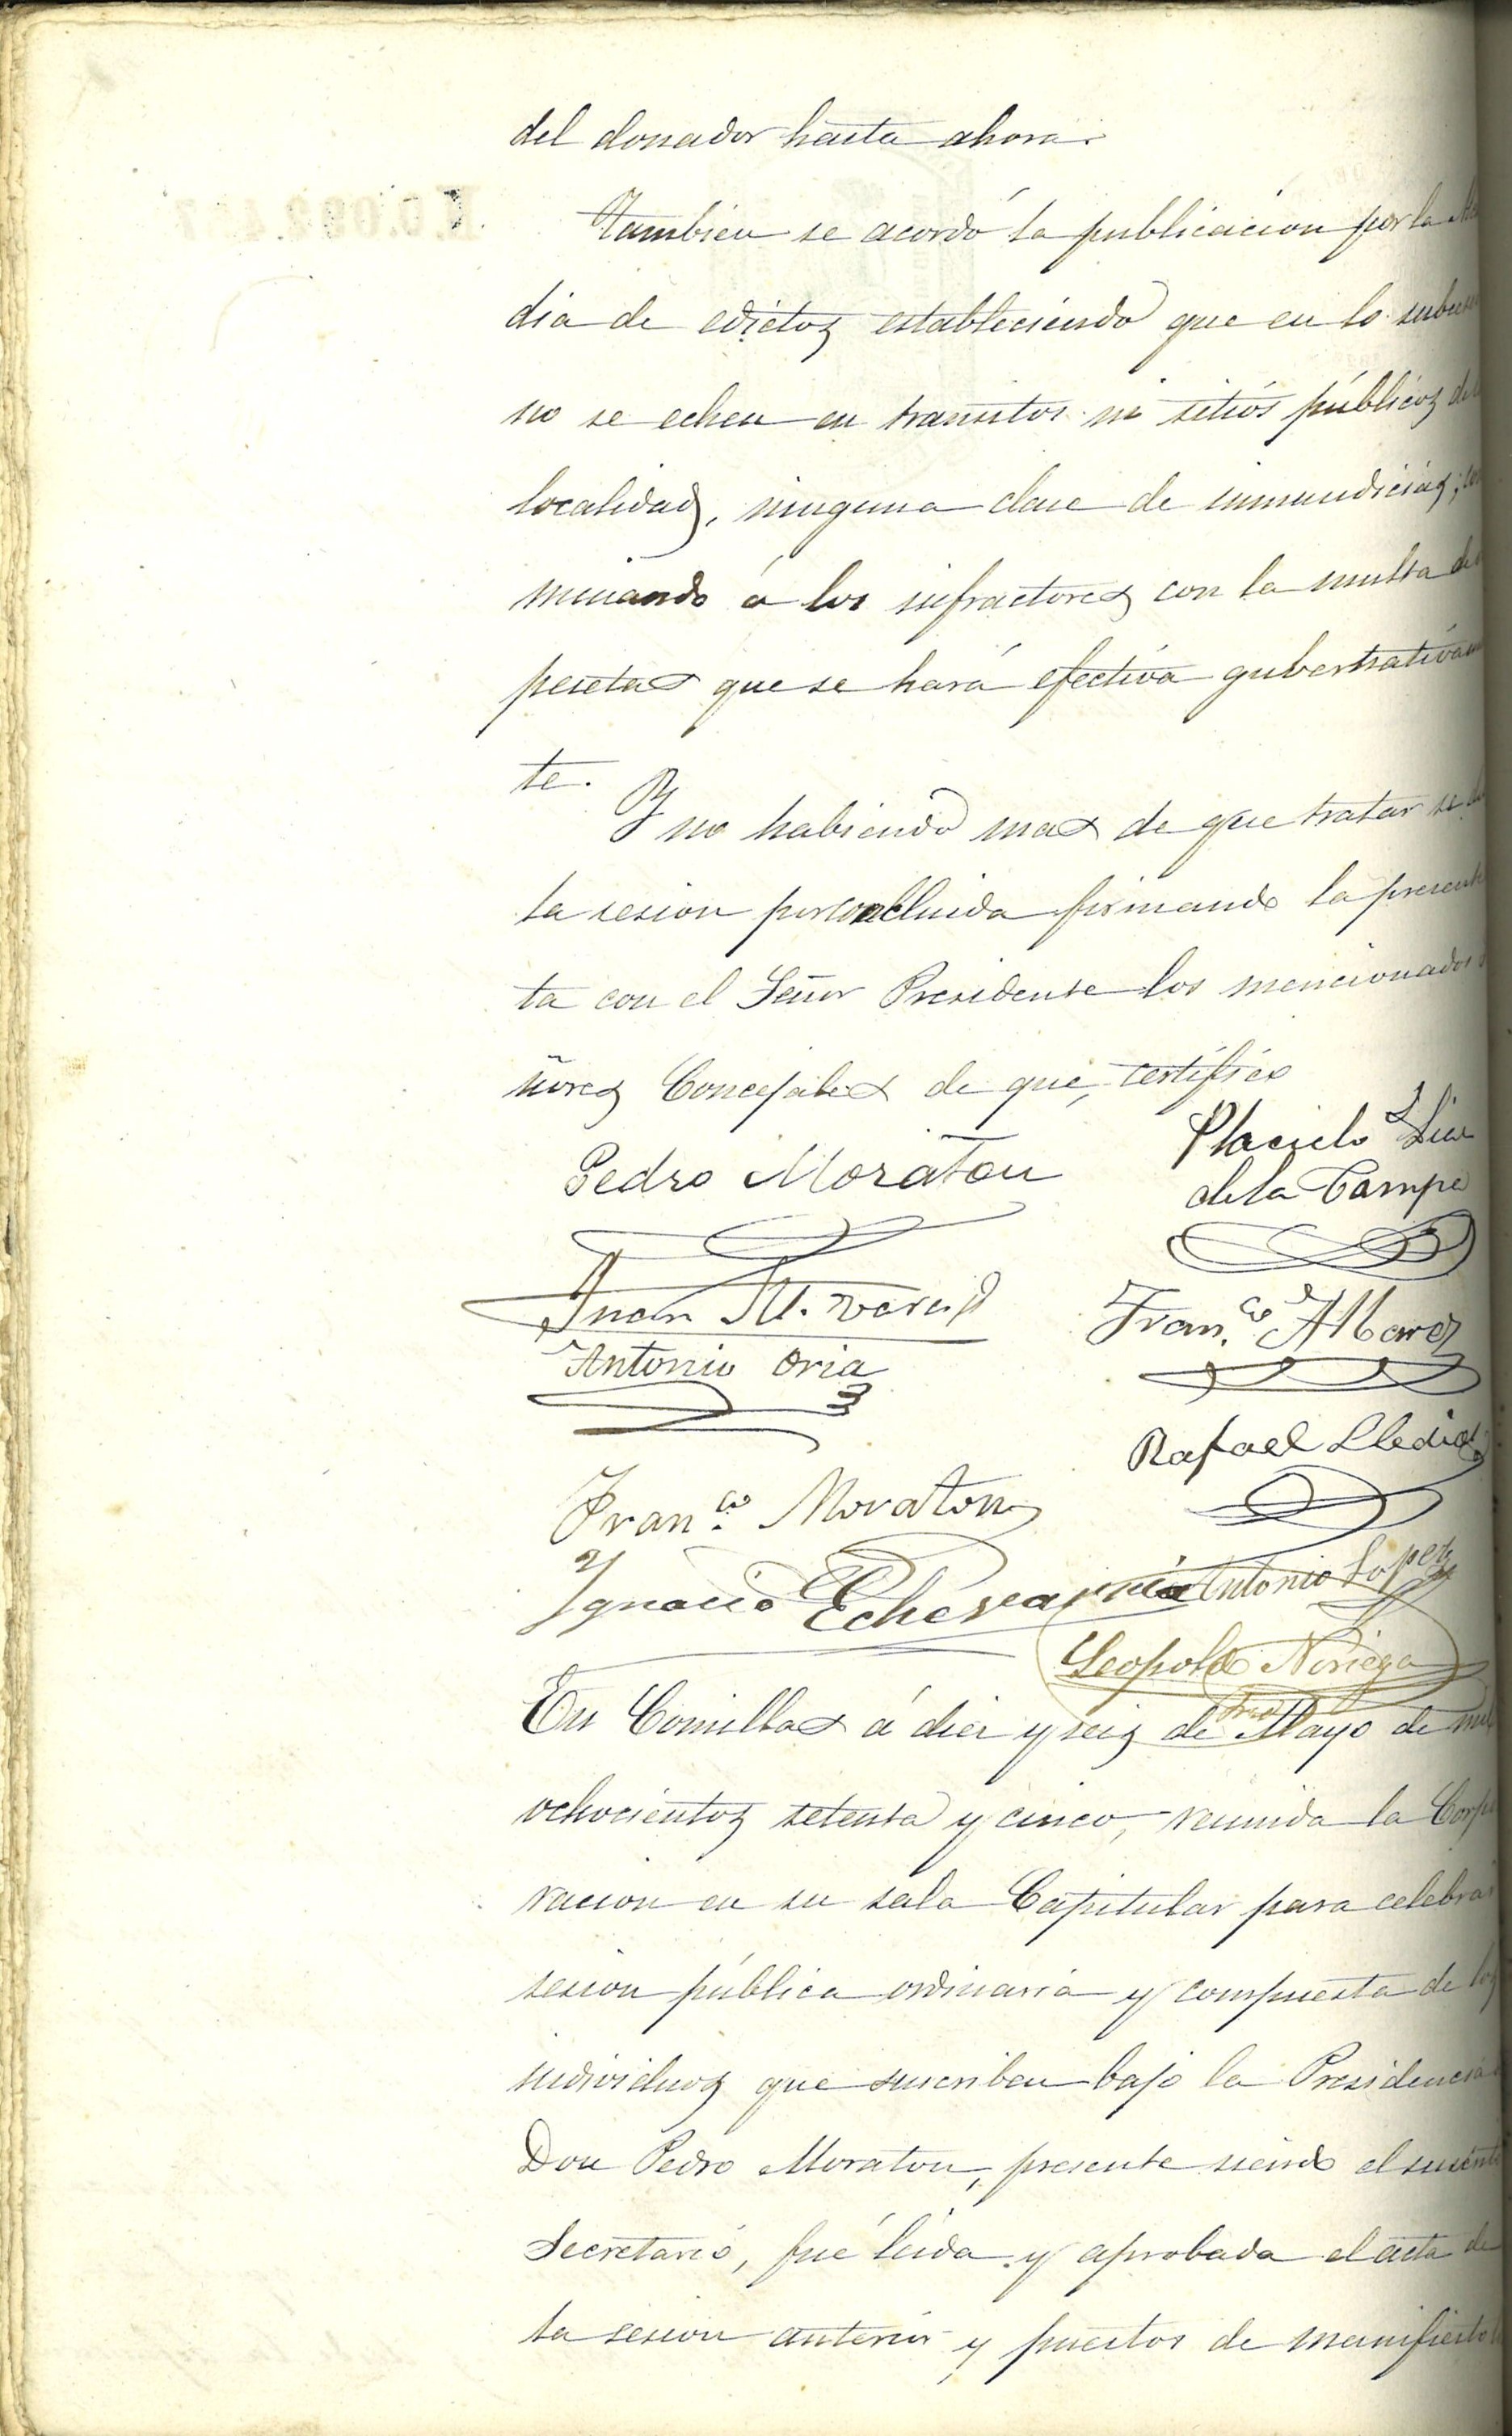 del donador hasta ahora.
Tambien se acordó la publicacion por la Al
dia de edictos estableciendo que en lo subce
no se echen en transitos ni sitiós públicos de
localidad, ninguna clase de inmundicias; co
minando á los infractores con la multa de
pesetas que se hará efectiva gubernativam
te.
Y no habiendo mas de que tratar se
la sesion por concluida firmando la present
ta con el Señor Presidente los mencionados
ñores Concejales de que, certifico
Pedro Moraton
Placido
de la Campa
Juan M.
Fran.co
Antonio Oria
Rafael
Fran.co Moraton
Ignacio Echevarría Antonio Lopez
Leopoldo Noriega
En Comillas á diez y seis de Mayo de mil
ochocientos setenta y cinco, reunida la Corpo
racion en su sala Capitular para celebrar
sesion pública ordinaria y compuesta de los
individuos que suscriben bajo la Presidencia
Don Pedro Moraton, presente siendo el
Secretario, fué leida y aprobada el acta de
la sesion anterior y puestos de manifiesto